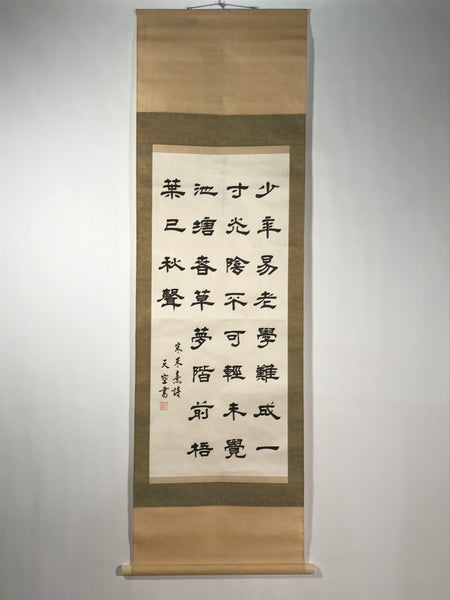 少年易老學難成一
寸光陰不可輕未覺
池塘春草夢階前梧
葉已秋聲
宋朱熹詩
天空書